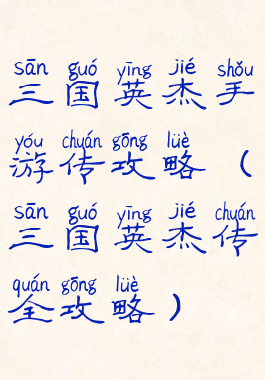 sān guó yīng jié shǒu
三国英杰手
yóu chuán gōng lüè
游传攻略（
sān guó yīng jié chuán
三国英杰传
quán gōng lüè
全攻略）